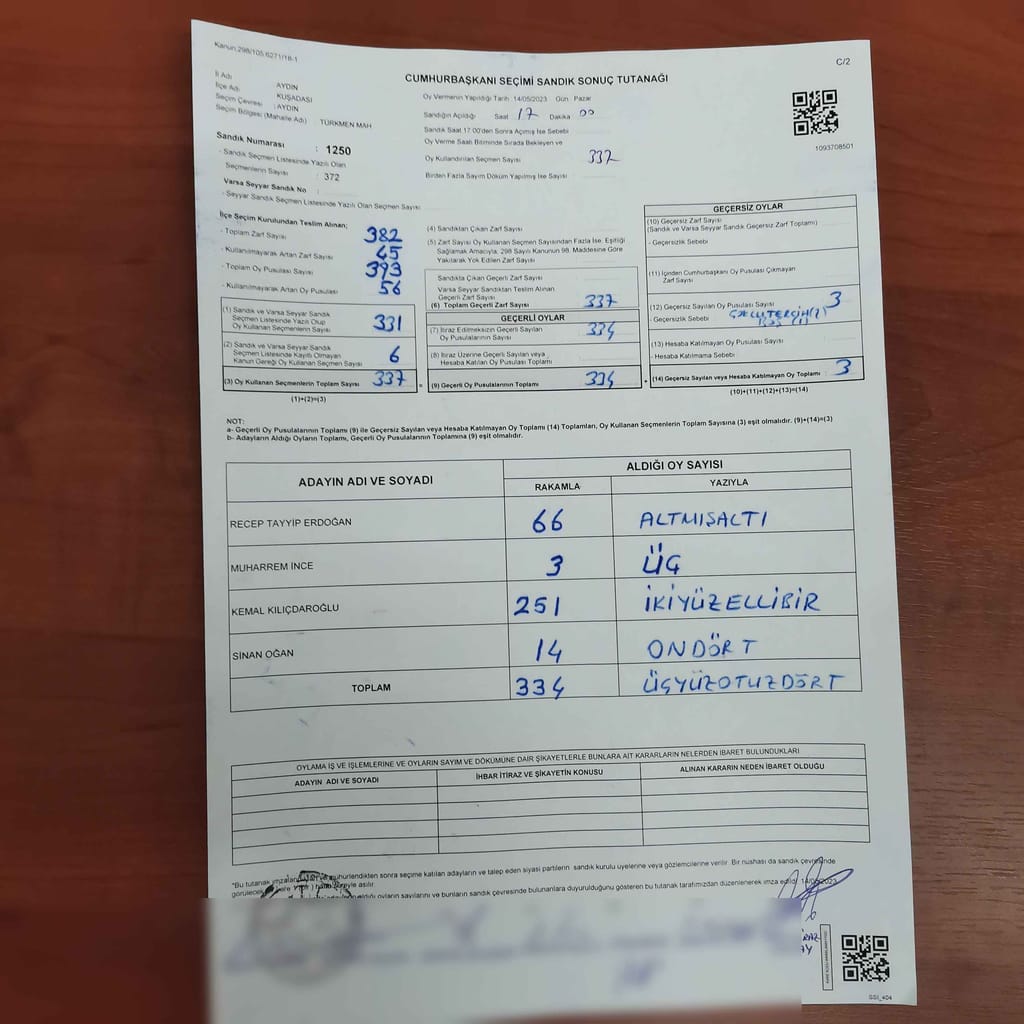 Kanun:298/105.6271/18-1
C/2
CUMHURBAŞKANI SEÇİMİ SANDIK SONUÇ TUTANAĞI
İl Adı : AYDIN
İlçe Adı : KUŞADASI
Seçim Çevresi : AYDIN
Seçim Bölgesi (Mahalle Adı) : TÜRKMEN MAH
Oy Vermenin Yapıldığı Tarih :14/05/2023 Gün : Pazar
Sandığın Açıldığı Saat 17 Dakika 00
Sandık Saat 17:00'den Sonra Açılmış İse Sebebi
Oy Verme Saati Bitiminde Sırada Bekleyen ve
Oy Kullandırılan Seçmen Sayısı 337
Birden Fazla Sayım Döküm Yapılmış İse Sayısı
1093708501
Sandık Numarası : 1250
- Sandık Seçmen Listesinde Yazılı Olan
Seçmenlerin Sayısı : 372
Varsa Seyyar Sandık No :
- Seyyar Sandık Seçmen Listesinde Yazılı Olan Seçmen Sayısı
İlçe Seçim Kurulundan Teslim Alınan;
- Toplam Zarf Sayısı 382
- Kullanılmayarak Artan Zarf Sayısı 45
- Toplam Oy Pusulası Sayısı 393
- Kullanılmayarak Artan Oy Pusulası 56
(1) Sandık ve Varsa Seyyar Sandık
Seçmen Listesinde Yazılı Olup
Oy Kullanan Seçmenlerin Sayısı 331
(2) Sandık ve Varsa Seyyar Sandık
Seçmen Listesinde Kayıtlı Olmayan
Kanun Gereği Oy Kullanan Seçmen Sayısı 6
(3) Oy Kullanan Seçmenlerin Toplam Sayısı 337
(1)+(2)=(3)
(4) Sandıktan Çıkan Zarf Sayısı
(5) Zarf Sayısı Oy Kullanan Seçmen Sayısından Fazla İse, Eşitliği
Sağlamak Amacıyla, 298 Sayılı Kanunun 98. Maddesine Göre
Yakılarak Yok Edilen Zarf Sayısı
Sandıkta Çıkan Geçerli Zarf Sayısı
Varsa Seyyar Sandıktan Teslim Alınan
Geçerli Zarf Sayısı
(6) Toplam Geçerli Zarf Sayısı 337
GEÇERLİ OYLAR
(7) İtiraz Edilmeksizin Geçerli Sayılan
Oy Pusulası Sayısı 334
(8) İtiraz Üzerine Geçerli Sayılan veya
Hesaba Katılan Oy Pusulası Toplamı
(9) Geçerli Oy Pusulalarının Toplamı 334
GEÇERSİZ OYLAR
(10) Geçersiz Zarf Sayısı
(Sandık ve Varsa Seyyar Sandık Geçersiz Zarf Toplamı)
- Geçersizlik Sebebi
(11) İçinden Cumhurbaşkanı Oy Pusulası Çıkmayan
Zarf Sayısı
(12) Geçersiz Sayılan Oy Pusulası Sayısı 3
- Geçersizlik Sebebi
(13) Hesaba Katılmayan Oy Pusulası Sayısı
- Hesaba Katılmama Sebebi
(14) Geçersiz Sayılan veya Hesaba Katılmayan Oy Toplamı 3
(10)+(11)+(12)+(13)=(14)
NOT:
a- Geçerli Oy Pusulalarının Toplamı (9) ile Geçersiz Sayılan veya Hesaba Katılmayan Oy Toplamı (14) Toplamları, Oy Kullanan Seçmenlerin Toplam Sayısına (3) eşit olmalıdır. (9)+(14)=(3)
b- Adayların Aldığı Oyların Toplamı, Geçerli Oy Pusulalarının Toplamına (9) eşit olmalıdır.
ADAYIN ADI VE SOYADI ALDIĞI OY SAYISI
RAKAMLA YAZIYLA
RECEP TAYYİP ERDOĞAN 66 ALTMIŞALTI
MUHARREM İNCE 3 ÜÇ
KEMAL KILIÇDAROĞLU 251 İKİYÜZELLİBİR
SİNAN OĞAN 14 ONDÖRT
TOPLAM 334 ÜÇYÜZOTUZDÖRT
OYLAMA İŞ VE İŞLEMLERİNE VE OYLARIN SAYIM VE DÖKÜMÜNE DAİR ŞİKAYETLERLE BUNLARA AİT KARARLARIN NELERDEN İBARET BULUNDUKLARI
ADAYIN ADI VE SOYADI İHBAR İTİRAZ VE ŞİKAYETİN KONUSU ALINAN KARARIN NEDEN İBARET OLDUĞU
"Bu tutanak sonra seçime katılan adayların ve talep eden siyasi partilerin sandık kurulu üyelerine veya gözlemcilerine verilir. Bir nüshası da sandık çevresinde
görülecek asılır.
aldığı oyların sayılarını ve bunların sandık çevresinde bulunanlara duyurulduğunu gösteren bu tutanak tarafımızdan düzenlenerek imza edildi. 14/05/2023
SSI_404